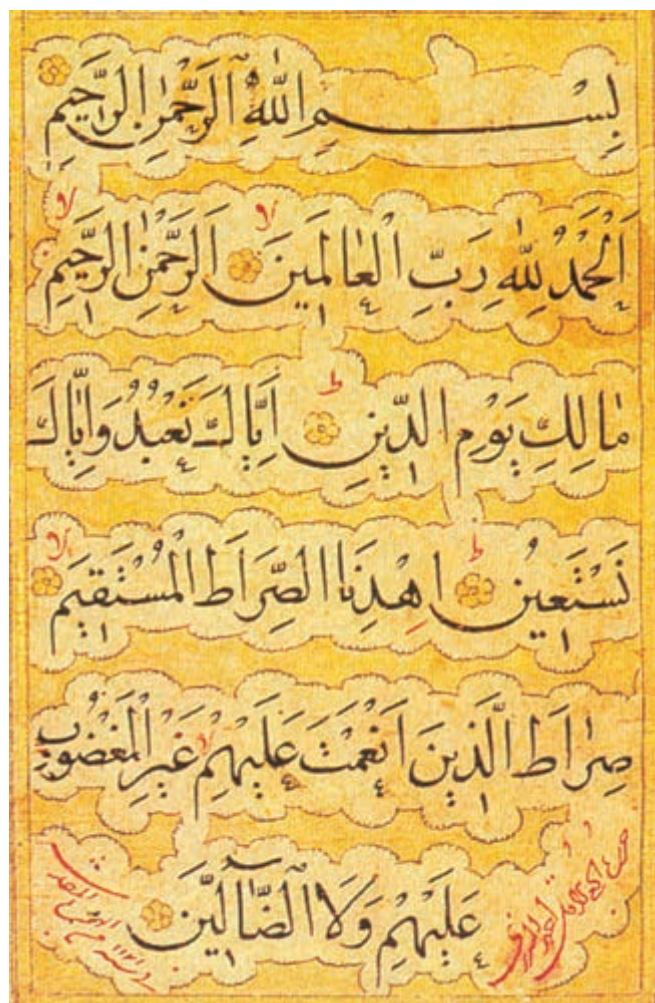 بِسْمِ اللّٰهِ الرَّحْمٰنِ الرَّحِيمِ
اَلْحَمْدُ لِلّٰهِ رَبِّ الْعَالَمِينَ لا اَلرَّحْمٰنِ الرَّحِيمِ لا
مَالِكِ يَوْمِ الدِّينِ ط اِيَّاكَ نَعْبُدُ وَاِيَّاكَ
نَسْتَعِينُ ط اِهْدِنَا الصِّرَاطَ الْمُسْتَقِيمَ لا
صِرَاطَ الَّذِينَ اَنْعَمْتَ عَلَيْهِمْ لا غَيْرِ الْمَغْضُوبِ
عَلَيْهِمْ وَلَا الضَّالِّينَ